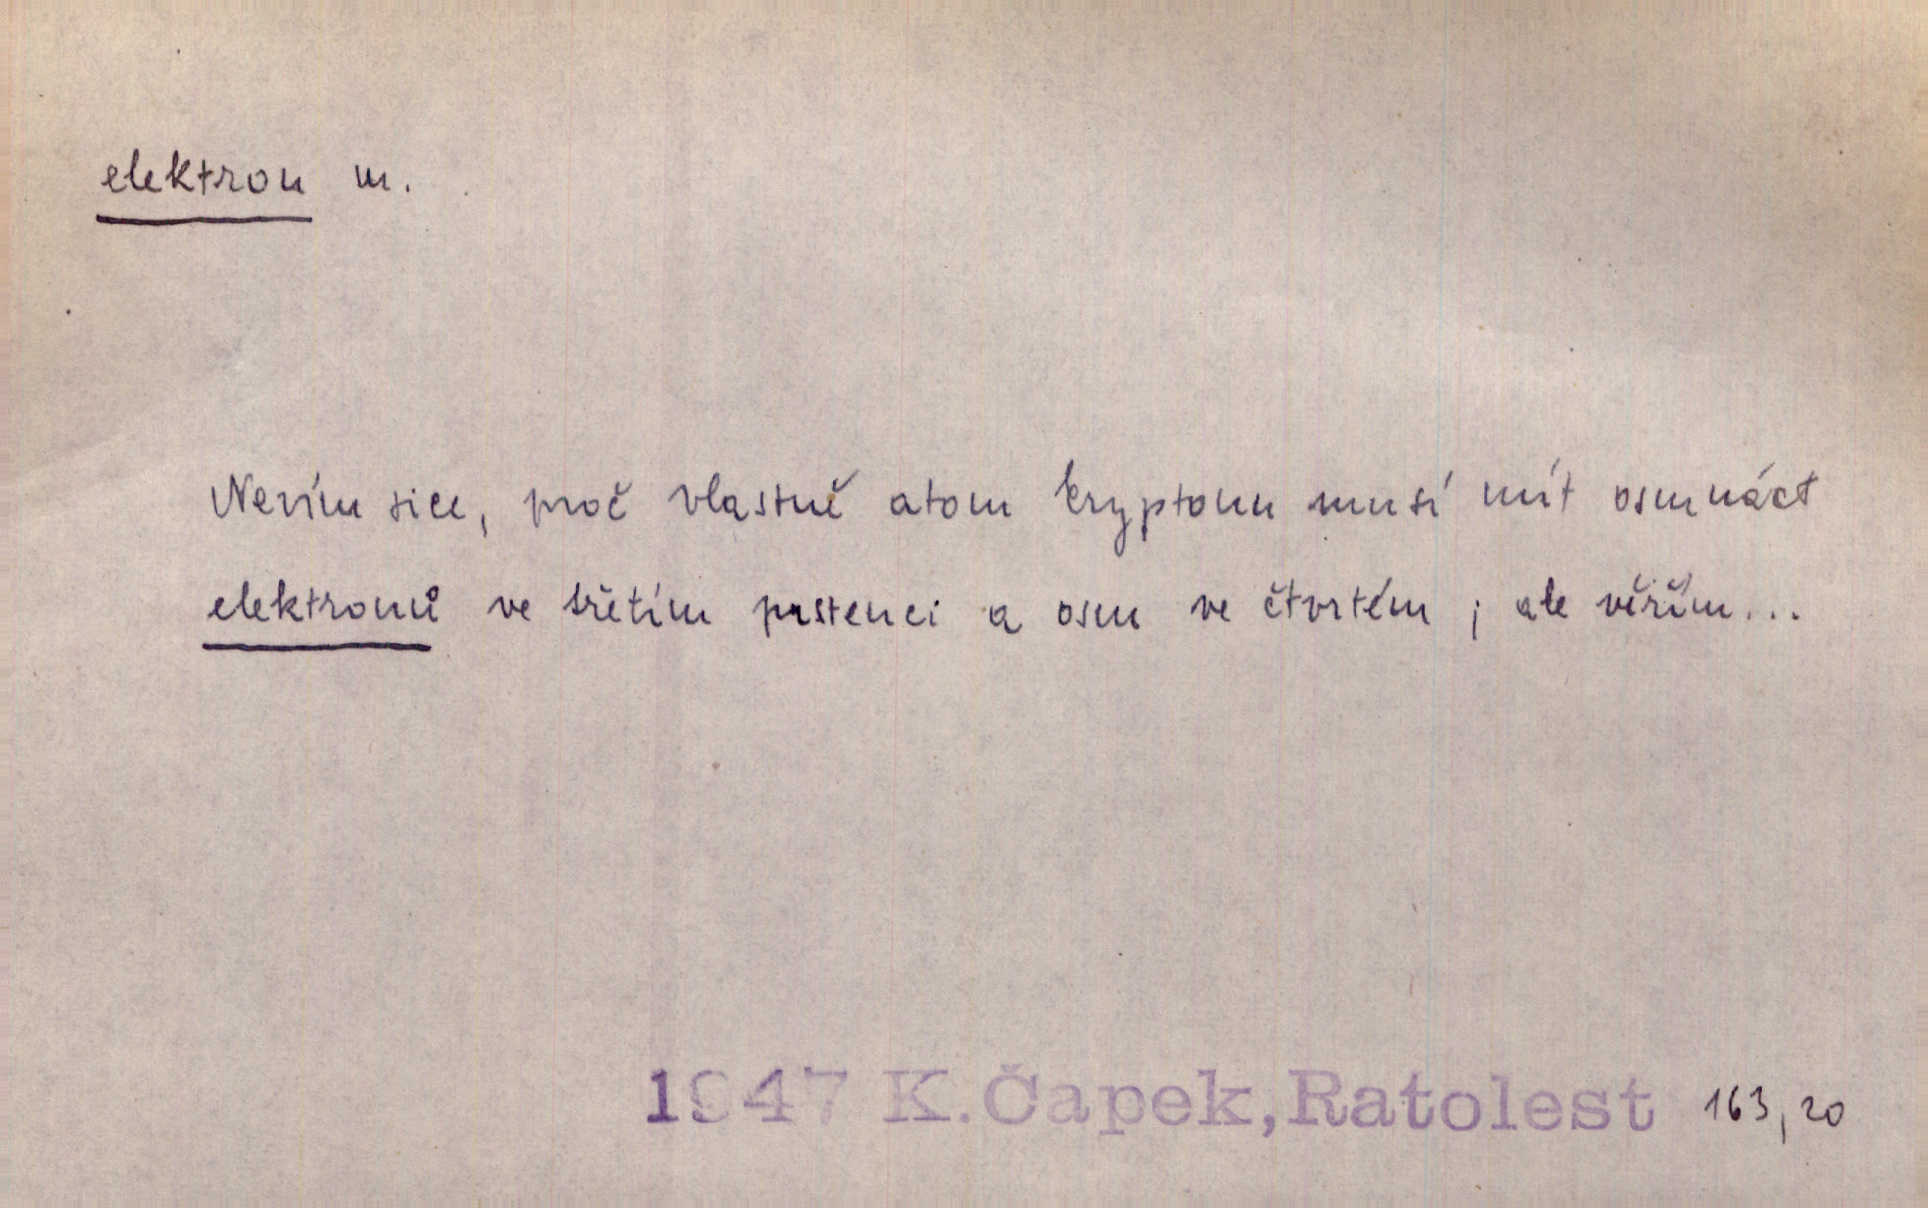 elektron m.
Nevím sice, proč vlastně atom kryptonu musí mít osmnáct
elektronů ve třetím prstenci a osm ve čtvrtém; ale věřím...
1947 K.Čapek,Ratolest 163,20